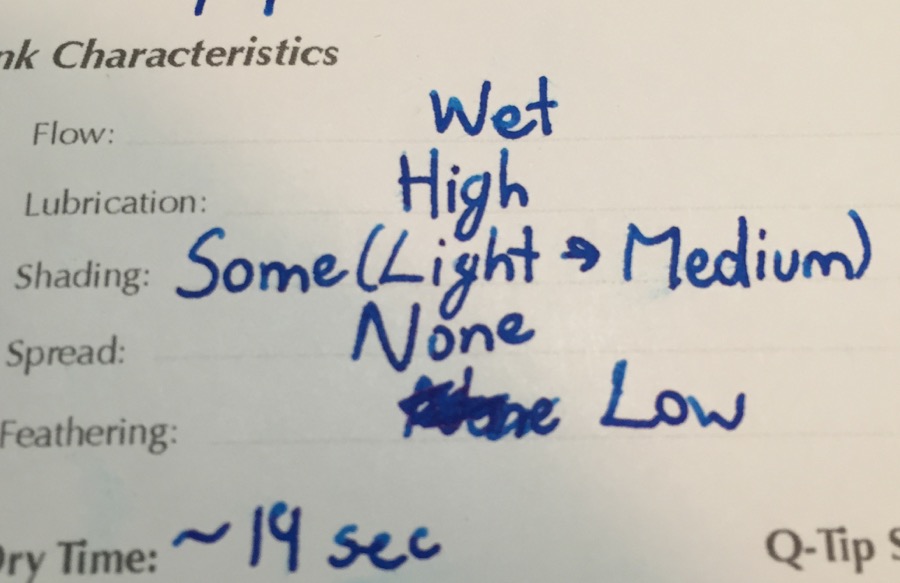 nk Characteristics
Flow: Wet
Lubrication: High
Shading: Some (Light → Medium)
Spread: None
Feathering: Low
Dry Time: ~ 19 sec
Q-Tip S